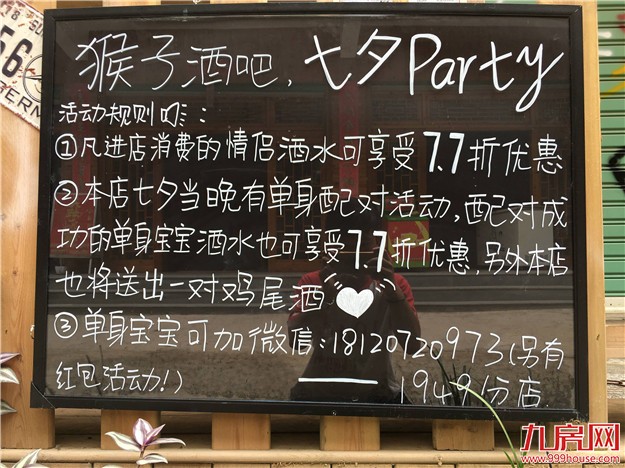 猴子酒吧,七夕Party
活动规则吖:
①凡进店消费的情侣酒水可享受7.7折优惠
②本店七夕当晚有单身配对活动,配对成
功的单身宝宝酒水也可享受7.7折优惠,另外本店
也将送出一对鸡尾酒
③单身宝宝可加微信:18120720973(另有
红包活动!)
1949分店
56
九房网
www.999house.com